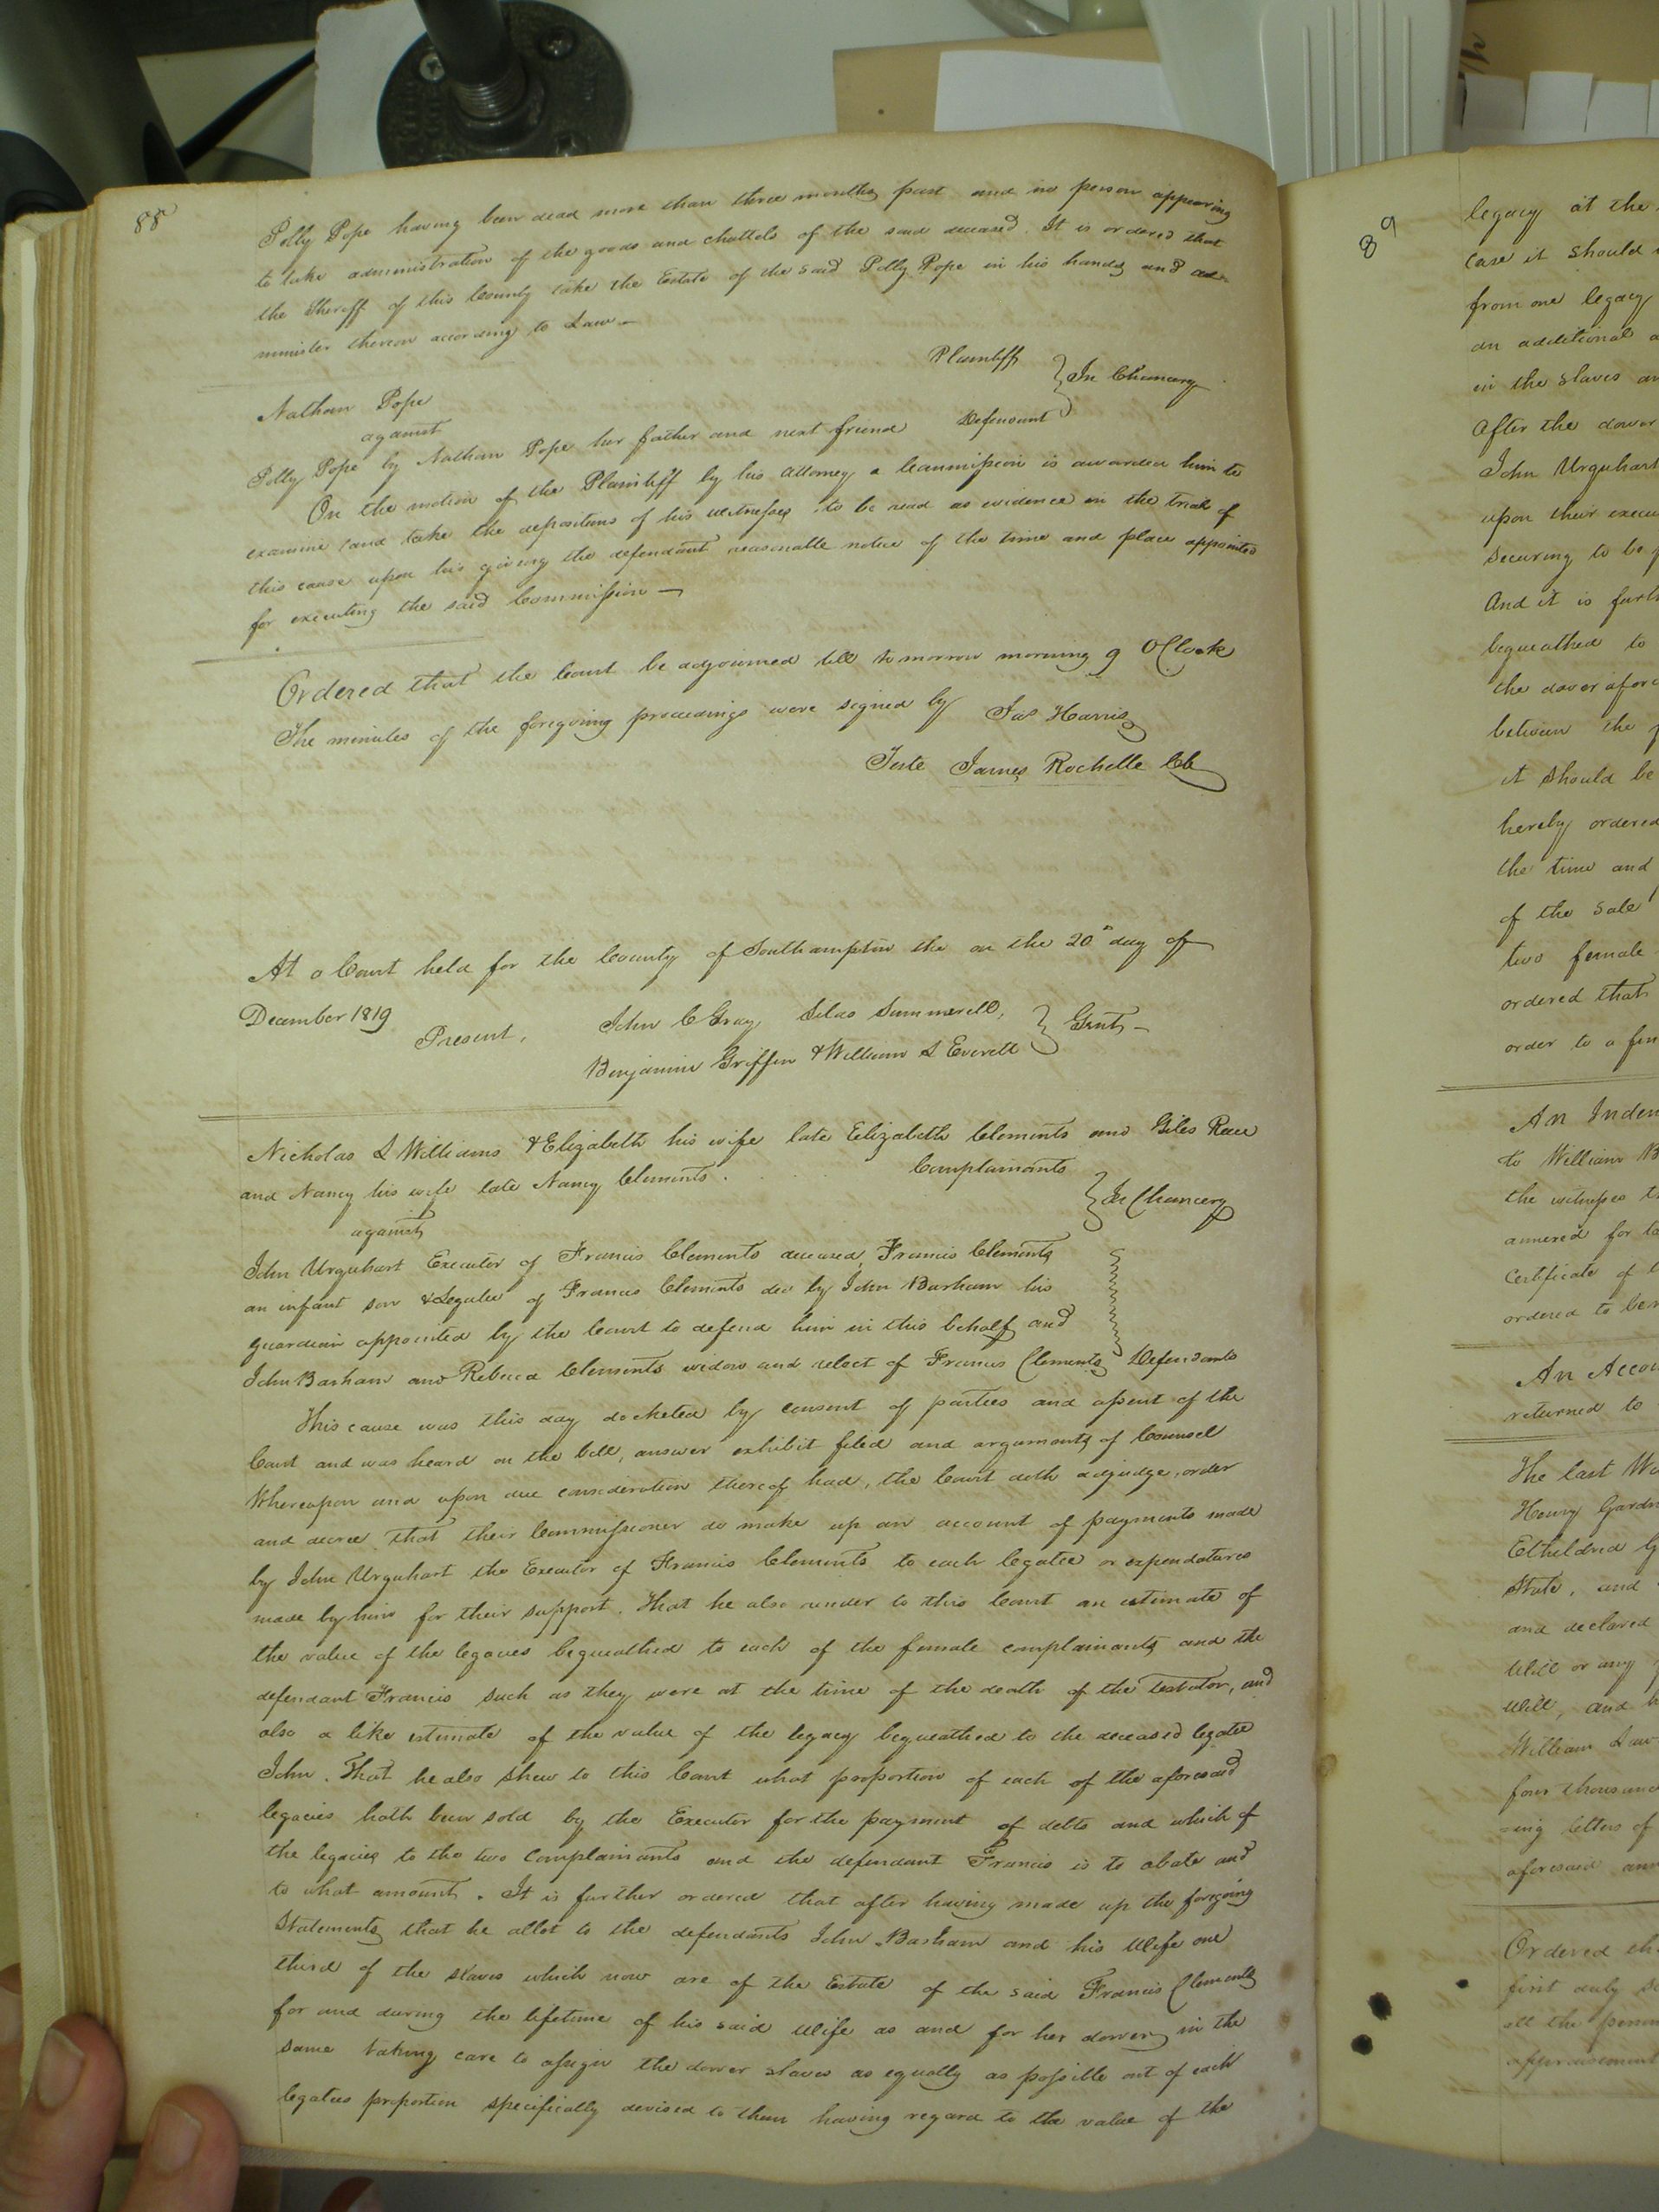 88
Polly Pope having been dead more than three months past and no person appearing
to take administration of the goods and chattels of the said deceased. It is ordered that
the Sheriff of this County take the Estate of the said Polly Pope in his hands and ad-
minister thereon according to Law —
Nathan Pope Plaintiff
against } In Chancery
Polly Pope by Nathan Pope her father and next friend Defendant
On the motion of the Plaintiff by his attorney a Commission is awarded him to
examine and take the depositions of his witnesses to be read as evidence in the trial of
this cause upon his giving the defendant reasonable notice of the time and place appointed
for executing the said Commission —
Ordered that the Court be adjourned till tomorrow morning 9 OClock
The minutes of the foregoing proceedings were signed by Jas Harris
Teste James Rochelle Clk
At a Court held for the County of Southampton the on the 20th day of
December 1819
Present, John C Gray Silas Summerell,
Benjamin Griffin & William S Everett } Gents —
Nicholas L Williams & Elizabeth his wife late Elizabeth Clements and Giles
and Nancy his wife late Nancy Clements. Complainants
against } In Chancery
John Urquhart Executor of Francis Clements deceased, Francis Clements
an infant son & Legatee of Francis Clements decd by John Barham his
guardian appointed by the Court to defend him in this behalf and
John Barham and Rebecca Clements widow and relect of Francis Clements Defendants
This cause was this day docketed by consent of parties and assent of the
Court and was heard on the bill, answer exhibit filed and arguments of Counsel
Whereupon and upon due consideration thereof had, the Court doth adjudge, order
and decree that their Commissioner do make up an account of payments made
by John Urquhart the Executor of Francis Clements to each legatee or expendatures
made by him for their support. That he also render to this Court an estimate of
the value of the legacies bequeathed to each of the female complainants and the
defendant Francis such as they were at the time of the death of the testator, and
also a like estimate of the value of the legacy bequeathed to the deceased legatee
John. That he also shew to this Court what proportion of each of the aforesaid
legacies hath been sold by the Executor for the payment of debts and which of
the legacies to the two complainants and the defendant Francis is to abate and
to what amount. It is further ordered that after having made up the foregoing
Statements that he allot to the defendants John Barham and his Wife one
third of the slaves which now are of the Estate of the said Francis Clements
for and during the lifetime of his said Wife as and for her dower in the
same taking care to assign the dower slaves as equally as possible out of each
legatees proportion specifically devised to them having regard to the value of the
89
legacy at the
case it should
from one legacy
an additional
in the slaves
After the dower
John Urquhart
upon their
securing to be
And it is
bequeathed to
the dower
between the
it should be
hereby ordered
the time and
of the sale
two female
ordered that
order to a
An
to William
the witnesses
annexed for
Certificate of
ordered to be
An
returned to
The last
Henry
Etheldred
State, and
and declared
Will or any
Will, and
William
four
letters of
aforesaid
Ordered
first duly
all the
appraisement